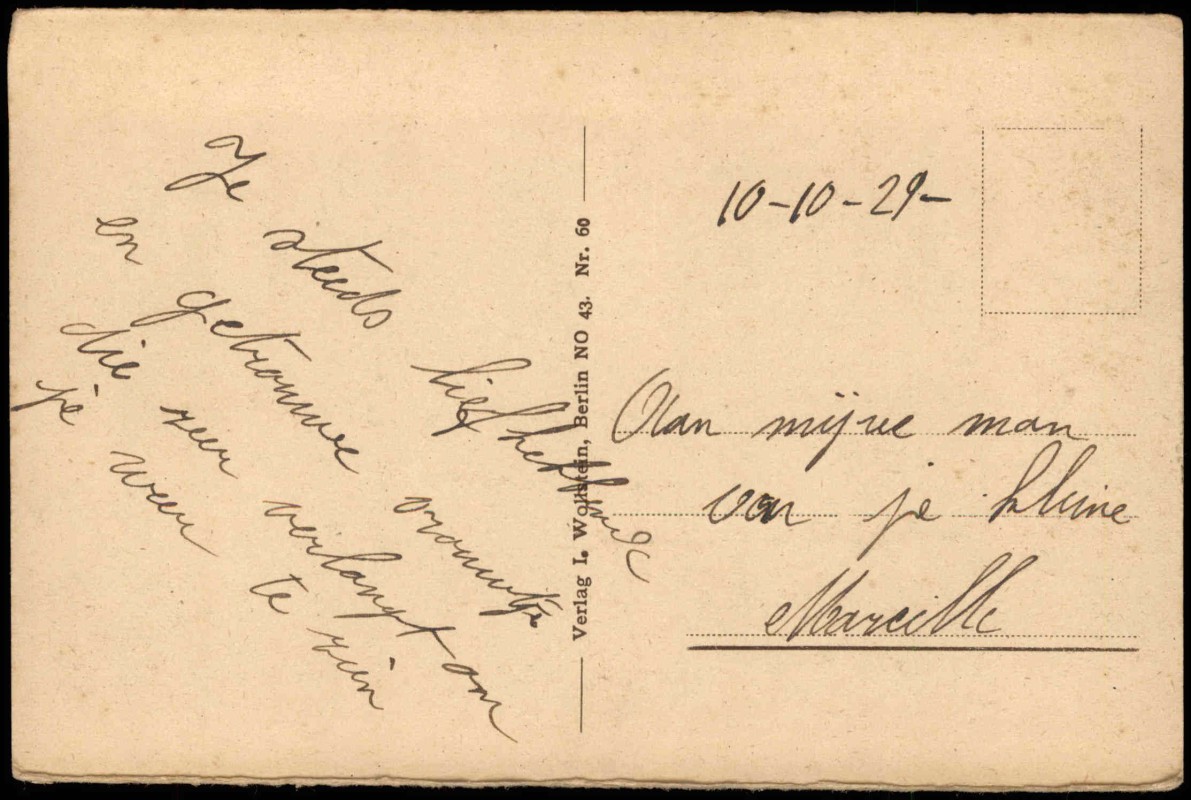 Je steeds liefhebbende
en getrouwe vrouwtje
die zeer verlangt om
je weer te zien
Verlag I. Wollstein, Berlin NO 43. Nr. 60
10-10-29-
Aan mijne man
van je kleine
Marcille